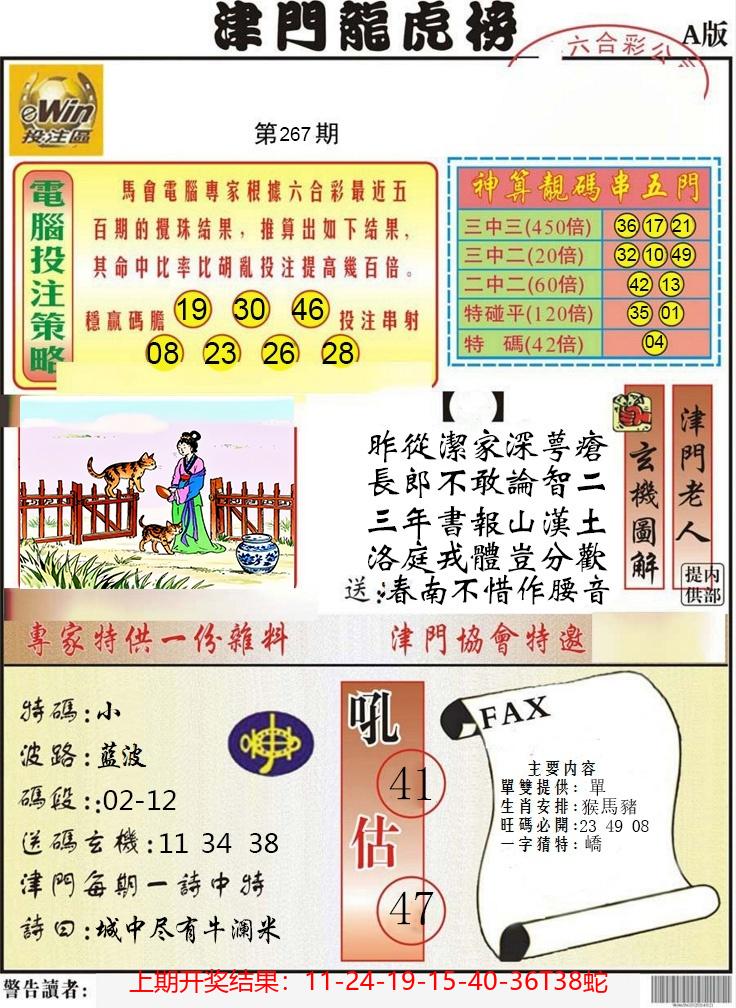 津門龍虎榜
A版
六合彩公
eWin
投注區
第267期
電腦投注策略
馬會電腦專家根據六合彩最近五
百期的攪珠结果，推算出如下结果，
其命中比率比胡亂投注提高幾百倍。
穩赢碼膽 19 30 46 投注串射
08 23 26 28
神算靚碼串五門
三中三(450倍) 36 17 21
三中二(20倍) 32 10 49
二中二(60倍) 42 13
特碰平(120倍) 35 01
特 碼(42倍) 04
【 】
昨從潔家深萼瘡
長郎不敢論智二
三年書報山漢土
洛庭戎體豈分歡
送:春南不惜作腰音
玄機圖解
津門老人
内部提供
專家特供一份雜料
津門協會特邀
特碼:小
波路:藍波
碼段::02-12
送碼玄機:11 34 38
津門每期一詩中特
詩曰:城中尽有牛澜米
吼
41
估
47
FAX
主要内容
單雙提供: 單
生肖安排:猴馬豬
旺碼必開:23 49 08
一字猜特: 嶠
警告讀者:
上期开奖结果：11-24-19-15-40-36T38蛇